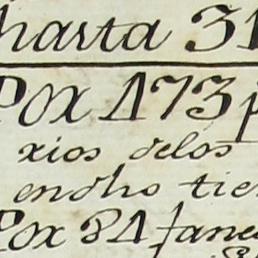 harta 31
Por 473 p
rios delos
endho tien
Por 84 fane